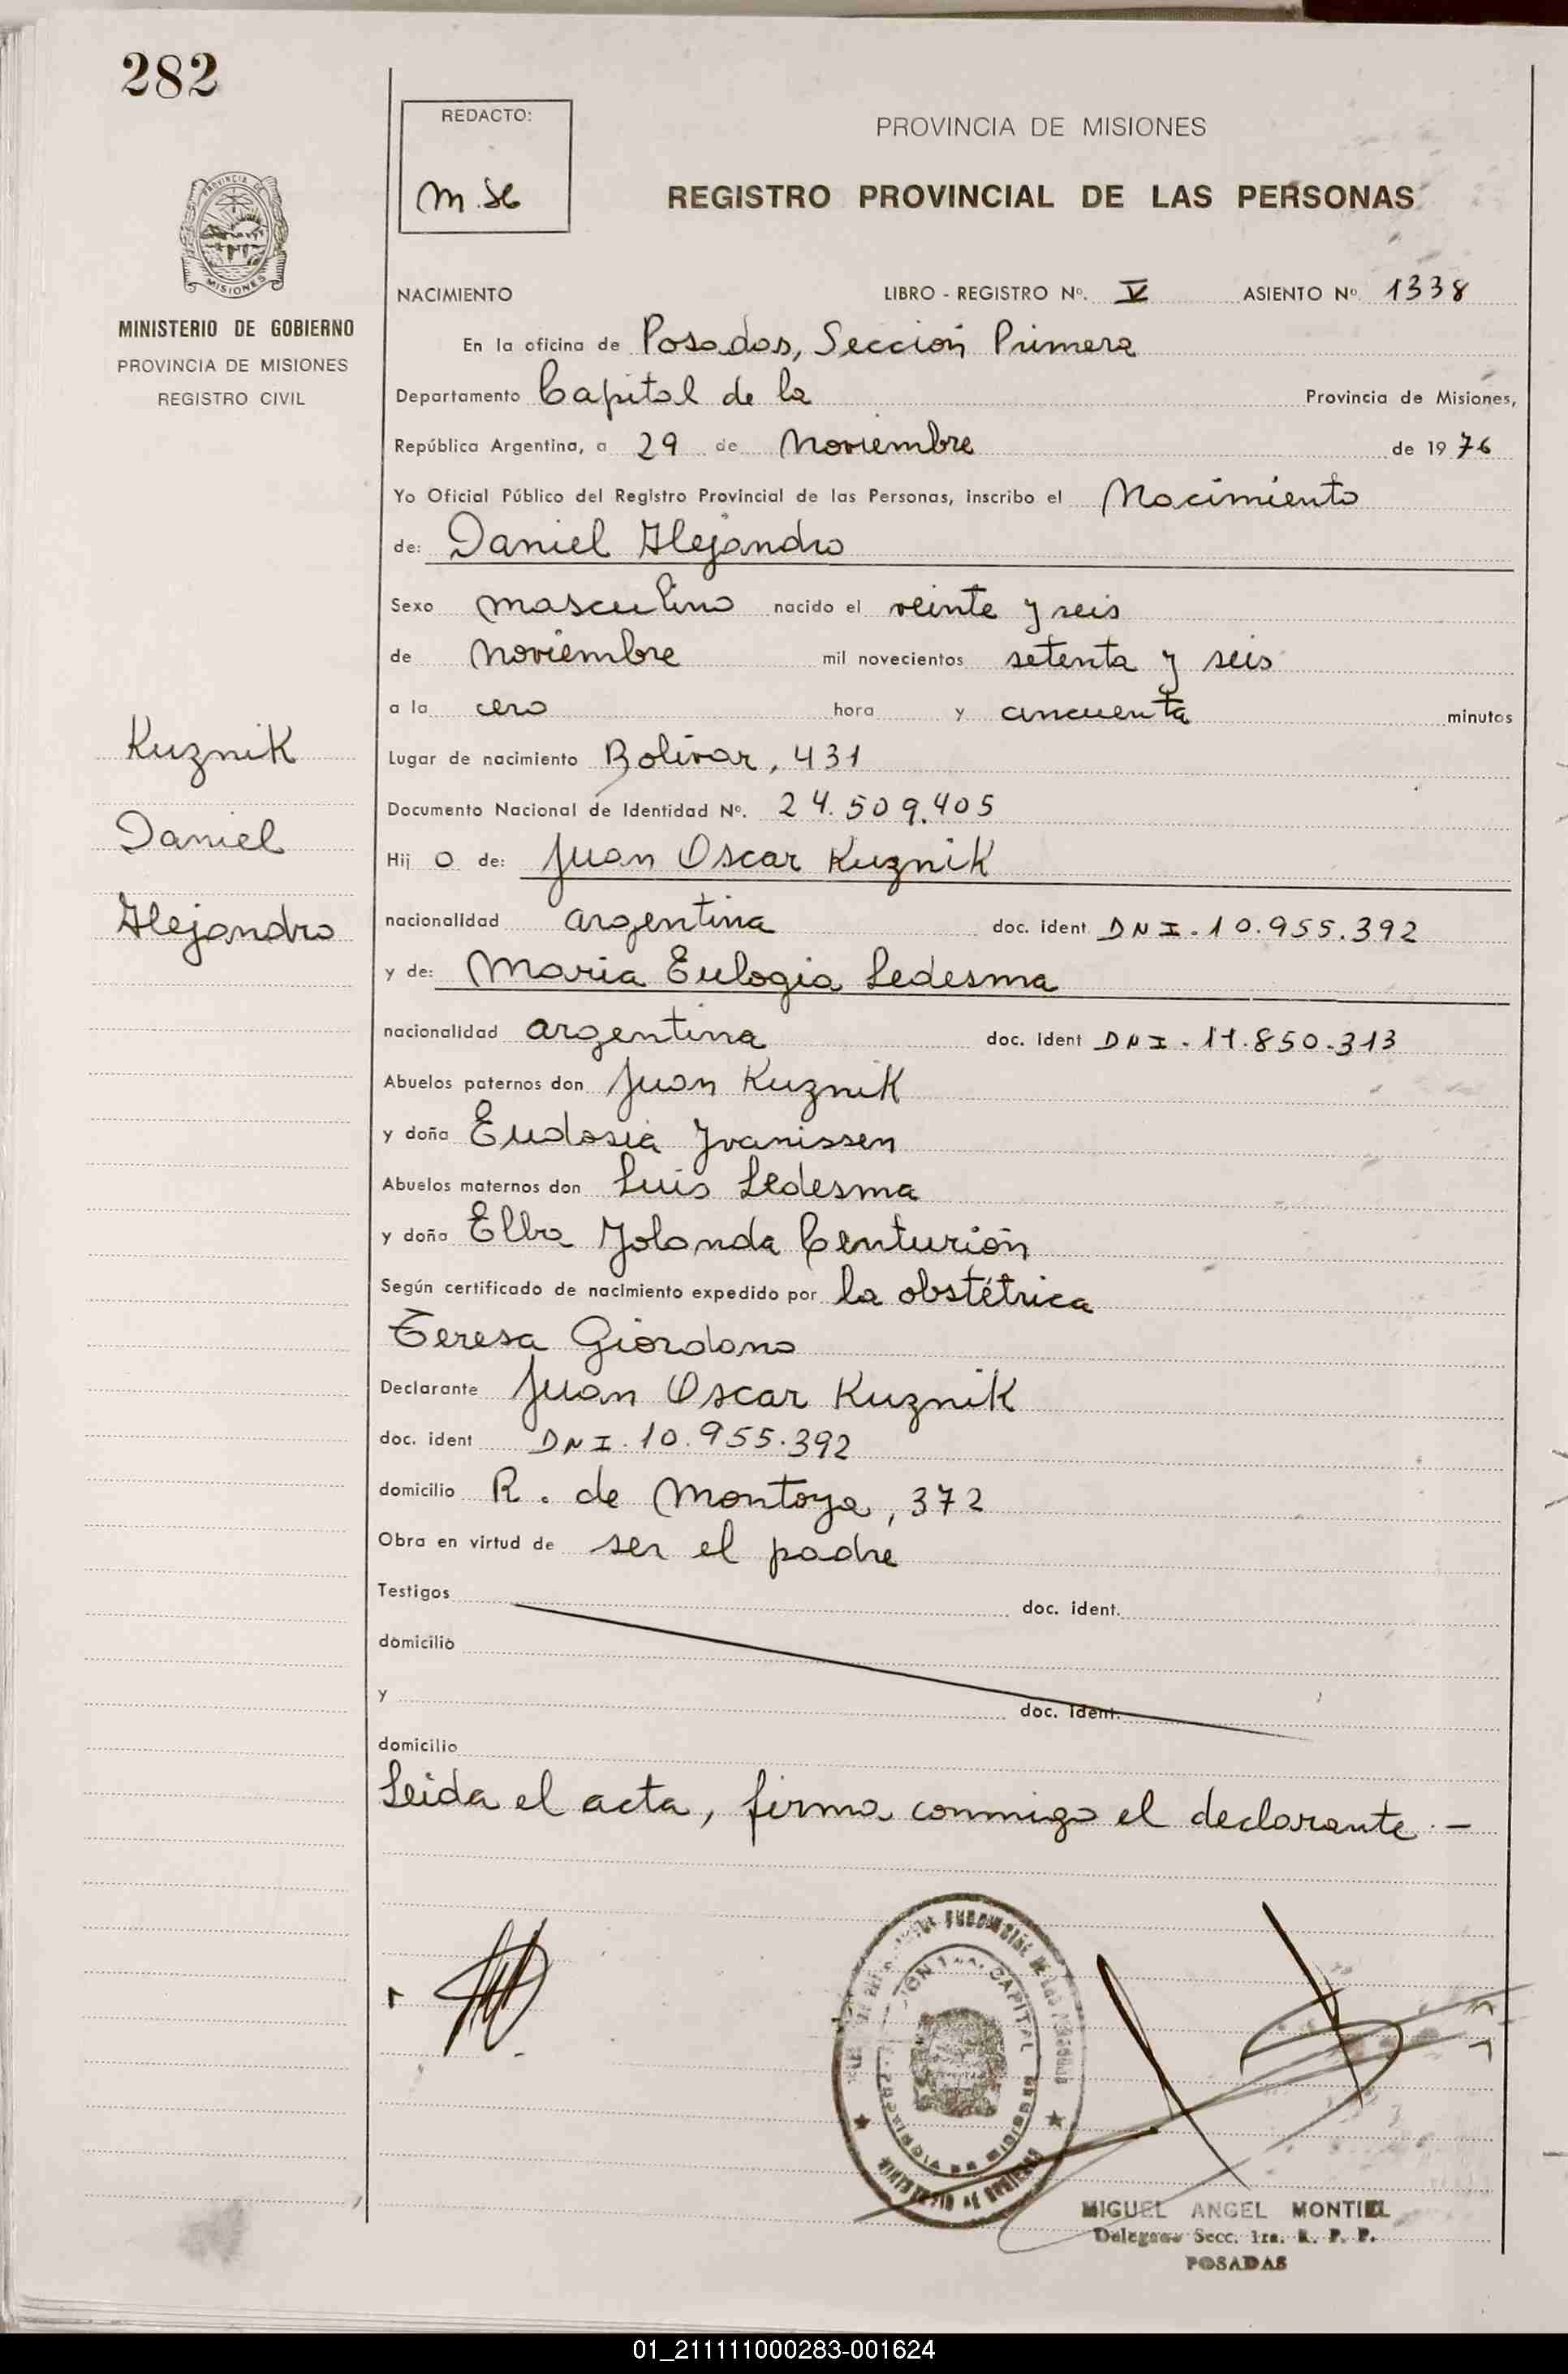 282
REDACTO:
M. Se
PROVINCIA DE MISIONES
REGISTRO PROVINCIAL DE LAS PERSONAS
PROVINCIA DE
MISIONES
MINISTERIO DE GOBIERNO
PROVINCIA DE MISIONES
REGISTRO CIVIL
NACIMIENTO LIBRO - REGISTRO Nº. V ASIENTO Nº 1338
En la oficina de Posadas, Sección Primera
Departamento Capital de la Provincia de Misiones,
República Argentina, a 29 de Noviembre de 1976
Yo Oficial Público del Registro Provincial de las Personas, inscribo el Nacimiento
de: Daniel Alejandro
Sexo masculino nacido el veinte y seis
de Noviembre mil novecientos setenta y seis
a la cero hora y cincuenta minutos
Lugar de nacimiento Bolívar, 431
Documento Nacional de Identidad Nº. 24.509.405
Hij o de: Juan Oscar Kuznik
nacionalidad argentina doc. ident DNI. 10.955.392
y de: Maria Eulogia Ledesma
nacionalidad argentina doc. ident DNI. 11.850.313
Abuelos paternos don Juan Kuznik
y doña Eudosia Ivanissen
Abuelos maternos don Luis Ledesma
y doña Elba Yolanda Centurión
Según certificado de nacimiento expedido por la obstétrica
Teresa Giordano
Declarante Juan Oscar Kuznik
doc. ident DNI. 10.955.392
domicilio R. de Montoya, 372
Obra en virtud de ser el padre
Testigos doc. ident.
domicilio
y doc. ident.
domicilio
Leida el acta, firma conmigo el declarante.-
Kuznik
Daniel
Alejandro
CAPITAL
MINISTERIO DE GOBIERNO
MIGUEL ANGEL MONTIEL
Delegado Secc. 1ra. R. P. P.
POSADAS
01_211111000283-001624